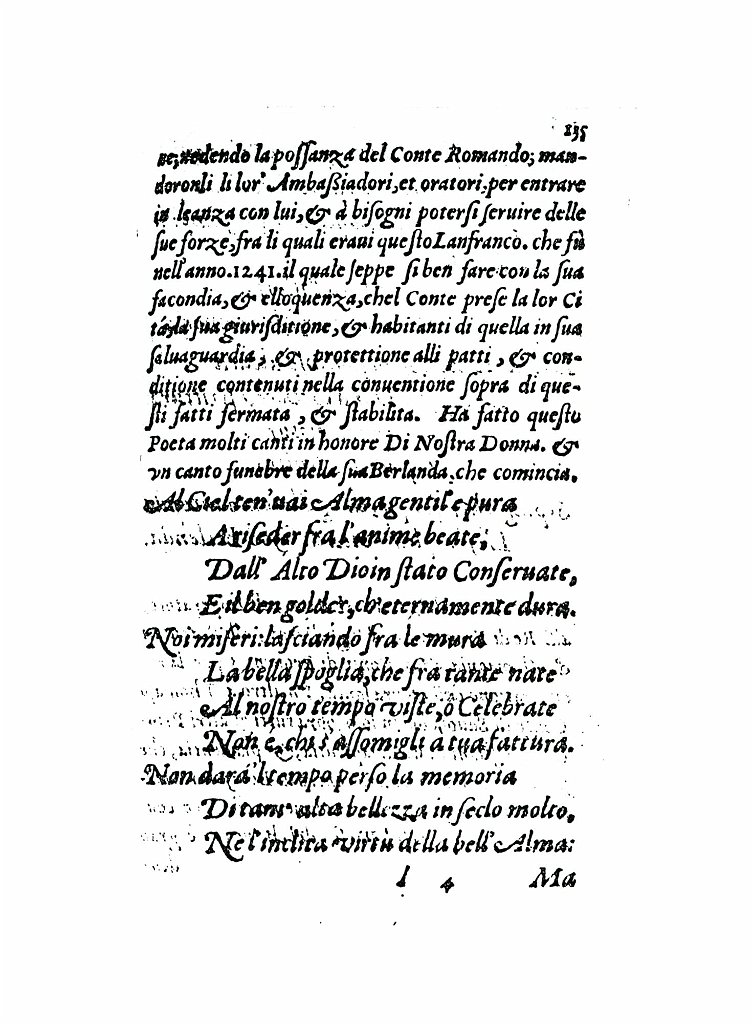 135
ne, vedendo la poſſanza del Conte Romando; man-
doronli li lor' Ambaſsiadori, et oratori, per entrare
in leanza con lui, & à biſogni poterſi ſeruire delle
ſue forze, fra li quali eraui queſto Lanfranco. che fù
nell'anno. 1241. il quale ſeppe ſi ben fare con la ſua
facondia, & elloquenza, chel Conte preſe la lor Ci
tá, la ſua giuriſditione, & habitanti di quella in ſua
ſaluaguardia, & protettione alli patti, & con-
ditione contenuti nella conuentione ſopra di que-
ſti fatti fermata, & ſtabilita. Ha fatto queſto
Poeta molti canti in honore Di Noſtra Donna. &
vn canto funebre della ſua Berlanda, che comincia.
Al Ciel ten' uai Alma gentil' e pura
A riſeder fra l'anime beate,
Dall' Alto Dio in ſtato Conſeruate,
E il ben golder, ch'eternamente dura.
Noi miſeri: laſciando fra le mura
La bella ſpoglia, che fra tante nate
Al noſtro tempo viſte, ò Celebrate
Non é, chi s'aſſomigli a tua fattura.
Non dará 'l tempo perſo la memoria
Di tant' alta bellezza in ſeclo molto,
Ne l'inclita virtù della bell' Alma:
I 4 Ma